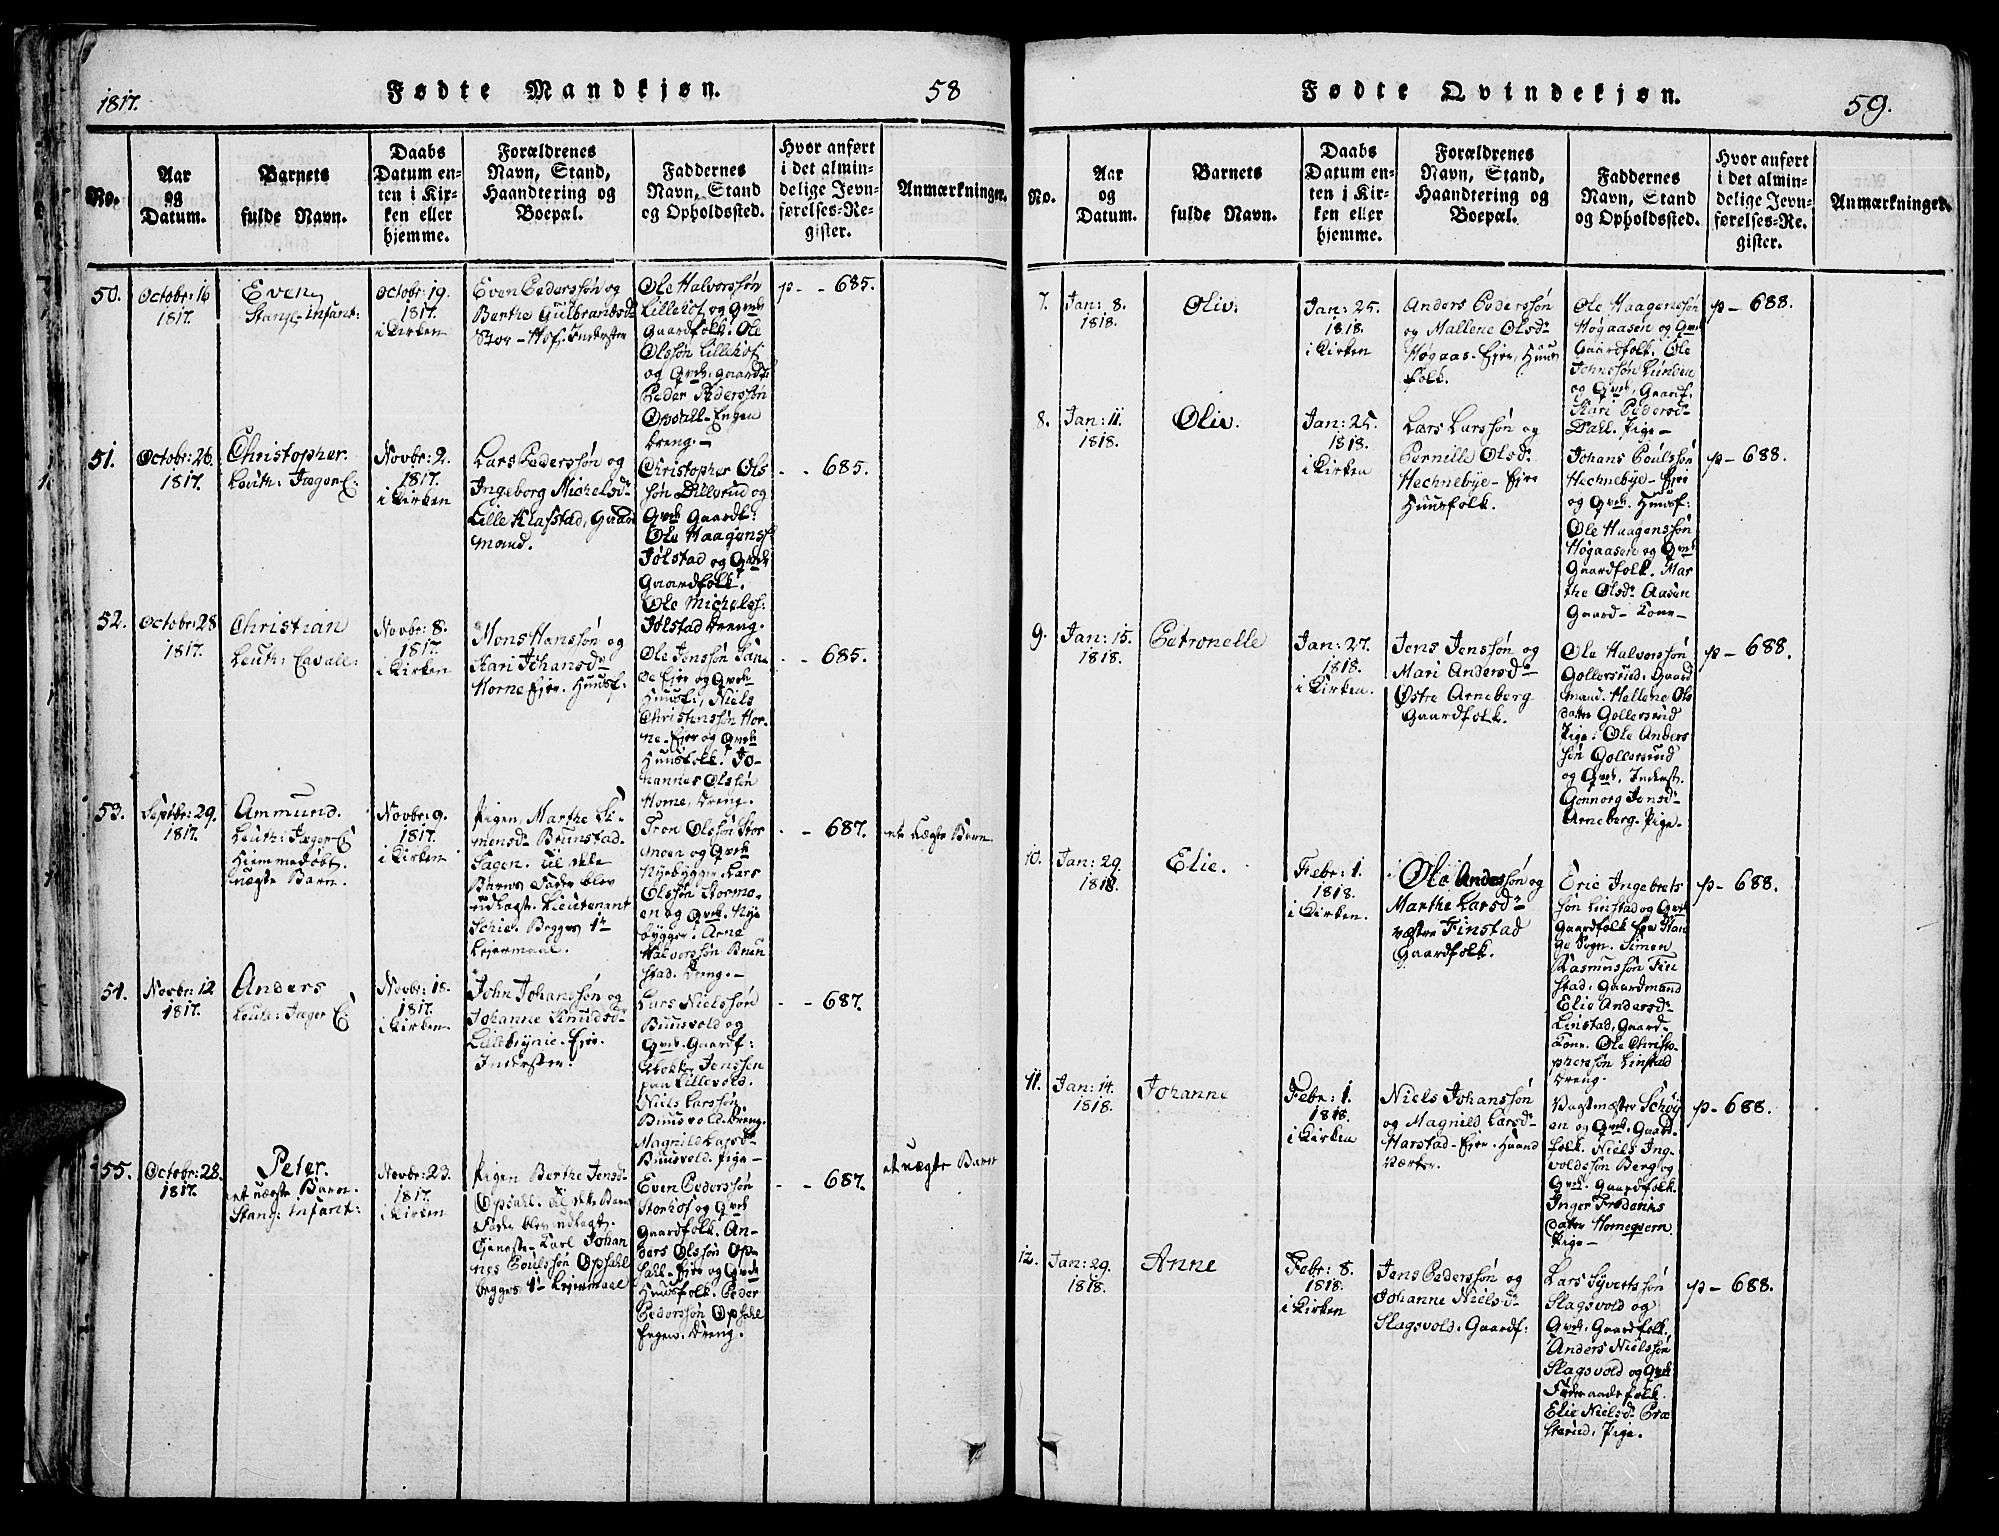 1817.
Fødte Mandkjøn.
58
No.
Aar
og
Datum.
Barnets
fulde Navn.
Daabs
Datum en-
ten i Kir-
ken eller
hjemme.
Forældrenes
Navn, Stand,
Haandtering og
Boepæl.
Faddernes
Navn, Stand
og Opholdssted.
Hvor anført
i det almin-
delige Jevn-
førelses-Re-
gister.
Anmærkninger.
50.
Octobr: 16
1817.
Even,
Stang: Infant:
Octobr: 19.
1817.
i Kirken
Even Pederssøn og
Berthe Gulbrandsdr
Stor-Hof. Inderster
Ole Halvorssøn
Lillehof og Qvde
Gaardfolk. Ole
Olssøn Lillehof
og Qvde. gaardf:
Peder Pederssøn
Opsall-Engen
Dreng.-
p- - 685.
51.
Octobr: 26.
1817.
Christopher.
Leuth: Jæger C:
Novbr: 2.
1817.
i Kirken
Lars Pederssøn og
Ingeborg Michelsdr
Lille Klafstad, Gaard
mand.
Christopher Ols
søn Dillerud og
Qvde Gaardf:
Ole Haagenss:
Jølstad og Qvde
Gaardfolk.
Ole Michelss:
Jølstad Dreng.
- - 685.
52.
Octobr: 28
1817.
Christian
Leuth: Cavall:
Novbr: 8.
1817.
i Kirken
Mons Hanssøn og
Kari Johansdr
Horne Ejer. Huusf.
Ole Jenssøn Lan-
de Ejer og Qvde
Huusf:, Niels
Christenssøn Hor-
ne-Ejer og Qvde
Huusfolk. Jo-
hannes Olssøn
Horne, Dreng.
- - 685.
53.
Septbr: 29.
1817.
Ammund.
Leuth: Jæger C
Hjemmedøbt.
uægte Barn.
Novbr: 9.
1817.
i Kirken
Pigen, Marthe Si-
mensdr Brunstad-
Hagen. Til dette
Barns Fader blev
udlagt. Lieutenant
Schie. Begges 1te
Lejermaal.
Tron Olssøn Stor
moen og Qvde
Nyebygger. Lars
Olssøn Stormo-
en og Qvde. Nye
bygger. Arne
Halvorssøn Brun
stad. Dreng.-
- - 687.
et uægte Barn
54.
Novbr: 12
1817.
Anders
Leuth: Jæger C:
Novbr: 18.
1817.
i Kirken
John Johanssøn og
Johanne Knudsdr
Lillebrynie. Ejer.
Inderster.
Lars Nielssøn
Buusvold og
Qvde. Gaardf:
Jenssen
paa Lillevold.
Niels Larssøn.
Buusvold. Dreng.
Magnild Larsdr
Buusvold. Pige-
- - 687.
55.
Octobr: 28.
1817.
Peter.
et uægte Barn.
Stang: Infant:
Novbr: 23.
1817.
i Kirken
Pigen Berthe Jensdr
Opsahl. Til dette Barn
Fader blev udlagt.
Tjeneste-Karl Johan
nes Poulssøn Opsahl
begges 1te Lejermaal
Even Pederssøn
Storhof og Qvde
Gaardfolk. An-
ders Olssøn Op-
sahl-Ejer og Qvde
Huusfolk. Peder
Pederssøn Opsahl
Engen. Dreng.
- - 687.
et uægte Barn
Fødte Qvindekjøn.
59.
No.
Aar
og
Datum.
Barnets
fulde Navn.
Daabs
Datum en-
ten i Kir-
ken eller
hjemme.
Forældrenes
Navn, Stand,
Haandtering og
Boepæl.
Faddernes
Navn, Stand
og Opholdssted.
Hvor anført
i det almin-
delige Jevn-
førelses-Re-
gister.
Anmærkninger.
7.
Jan: 8.
1818.
Oliv.
Jan: 25.
1818.
i Kirken
Anders Pederssøn
og Mallene Olsdr
Høgaas-Ejer, Huus
folk.
Ole Haagenssøn
Høgaasen og Qvde
Gaardfolk. Ole
Johnssøn Lunden
og Qvde. Gaardf.
Kari Pedersdr
Dall. Pige-
p- 688.
8.
Jan: 11.
1818.
Oliv.
Jan: 25.
1818.
i Kirken
Lars Larssøn og
Pernille Olsdr
Hechnebye-Ejer
Huusfolk.
Johans Poulssøn
Hechnebye-Ejer
og Qvde. Huusf:
Ole Haagenssøn
Høgaasen og Qvde
Gaardfolk. Mar
the Olsdr Aasen
Gaard-Kone-
p- 688.
9.
Jan: 15.
1818.
Petronelle
Jan: 27.
1818.
i Kirken.
Jens Jenssøn og
Mari Andersdr
Østre Arneberg
Gaardfolk.
Ole Halvorssøn
Gollersrud. Gaard
mand. Hellene Ols
datter Gollersrud
Pige. Ole Anders
søn Gollersrud
og Qvde. Inderst.
Gonnorg Jensdr
Arneberg. Pige.
p- 688.
10.
Jan: 29
1818.
Elie.
Febr: 1.
1818.
i Kirken.
Ole Anderssøn og
Marthe Larsdr
vestre Finstad
Gaardfolk.
Eric Ingebrets
søn Linstad og Qvde
Gaardfolk fra Stan
ge Sogn. Simen
Rasmussøn Fin
stad, Gaardmand
Elie Andersdr
Linstad, Gaard-
Kone. Ole Christo-
pherssøn Linstad
Dreng.
p- 688.
11.
Jan: 14.
1818.
Johanne
Febr: 1.
1818.
i Kirken
Niels Johanssøn
og Magnild Larsdr
Harstad-Ejer. Haand
værker.
Vagtmester Schøy
en og Qvde. Gaard-
folk. Niels Ing-
voldssøn Berg og
Qvde. Gaardfolk.
Inger Frederiks
dater Homegsern.
Pige-
p- 688.
12.
Jan: 29.
1818.
Anne
Febr: 8.
1818.
i Kirken
Jens Pederssøn og
Johanne Nielsdr
Slagsvold. Gaardf:
Lars Syvertssøn
Slagsvold og
Qvde. Gaardfolk.
Anders Nielssøn
Slagsvold og Qvde
Føderaadsfolk.
Elie Nielsdr Præ
sterud, Pige.
p- 688.